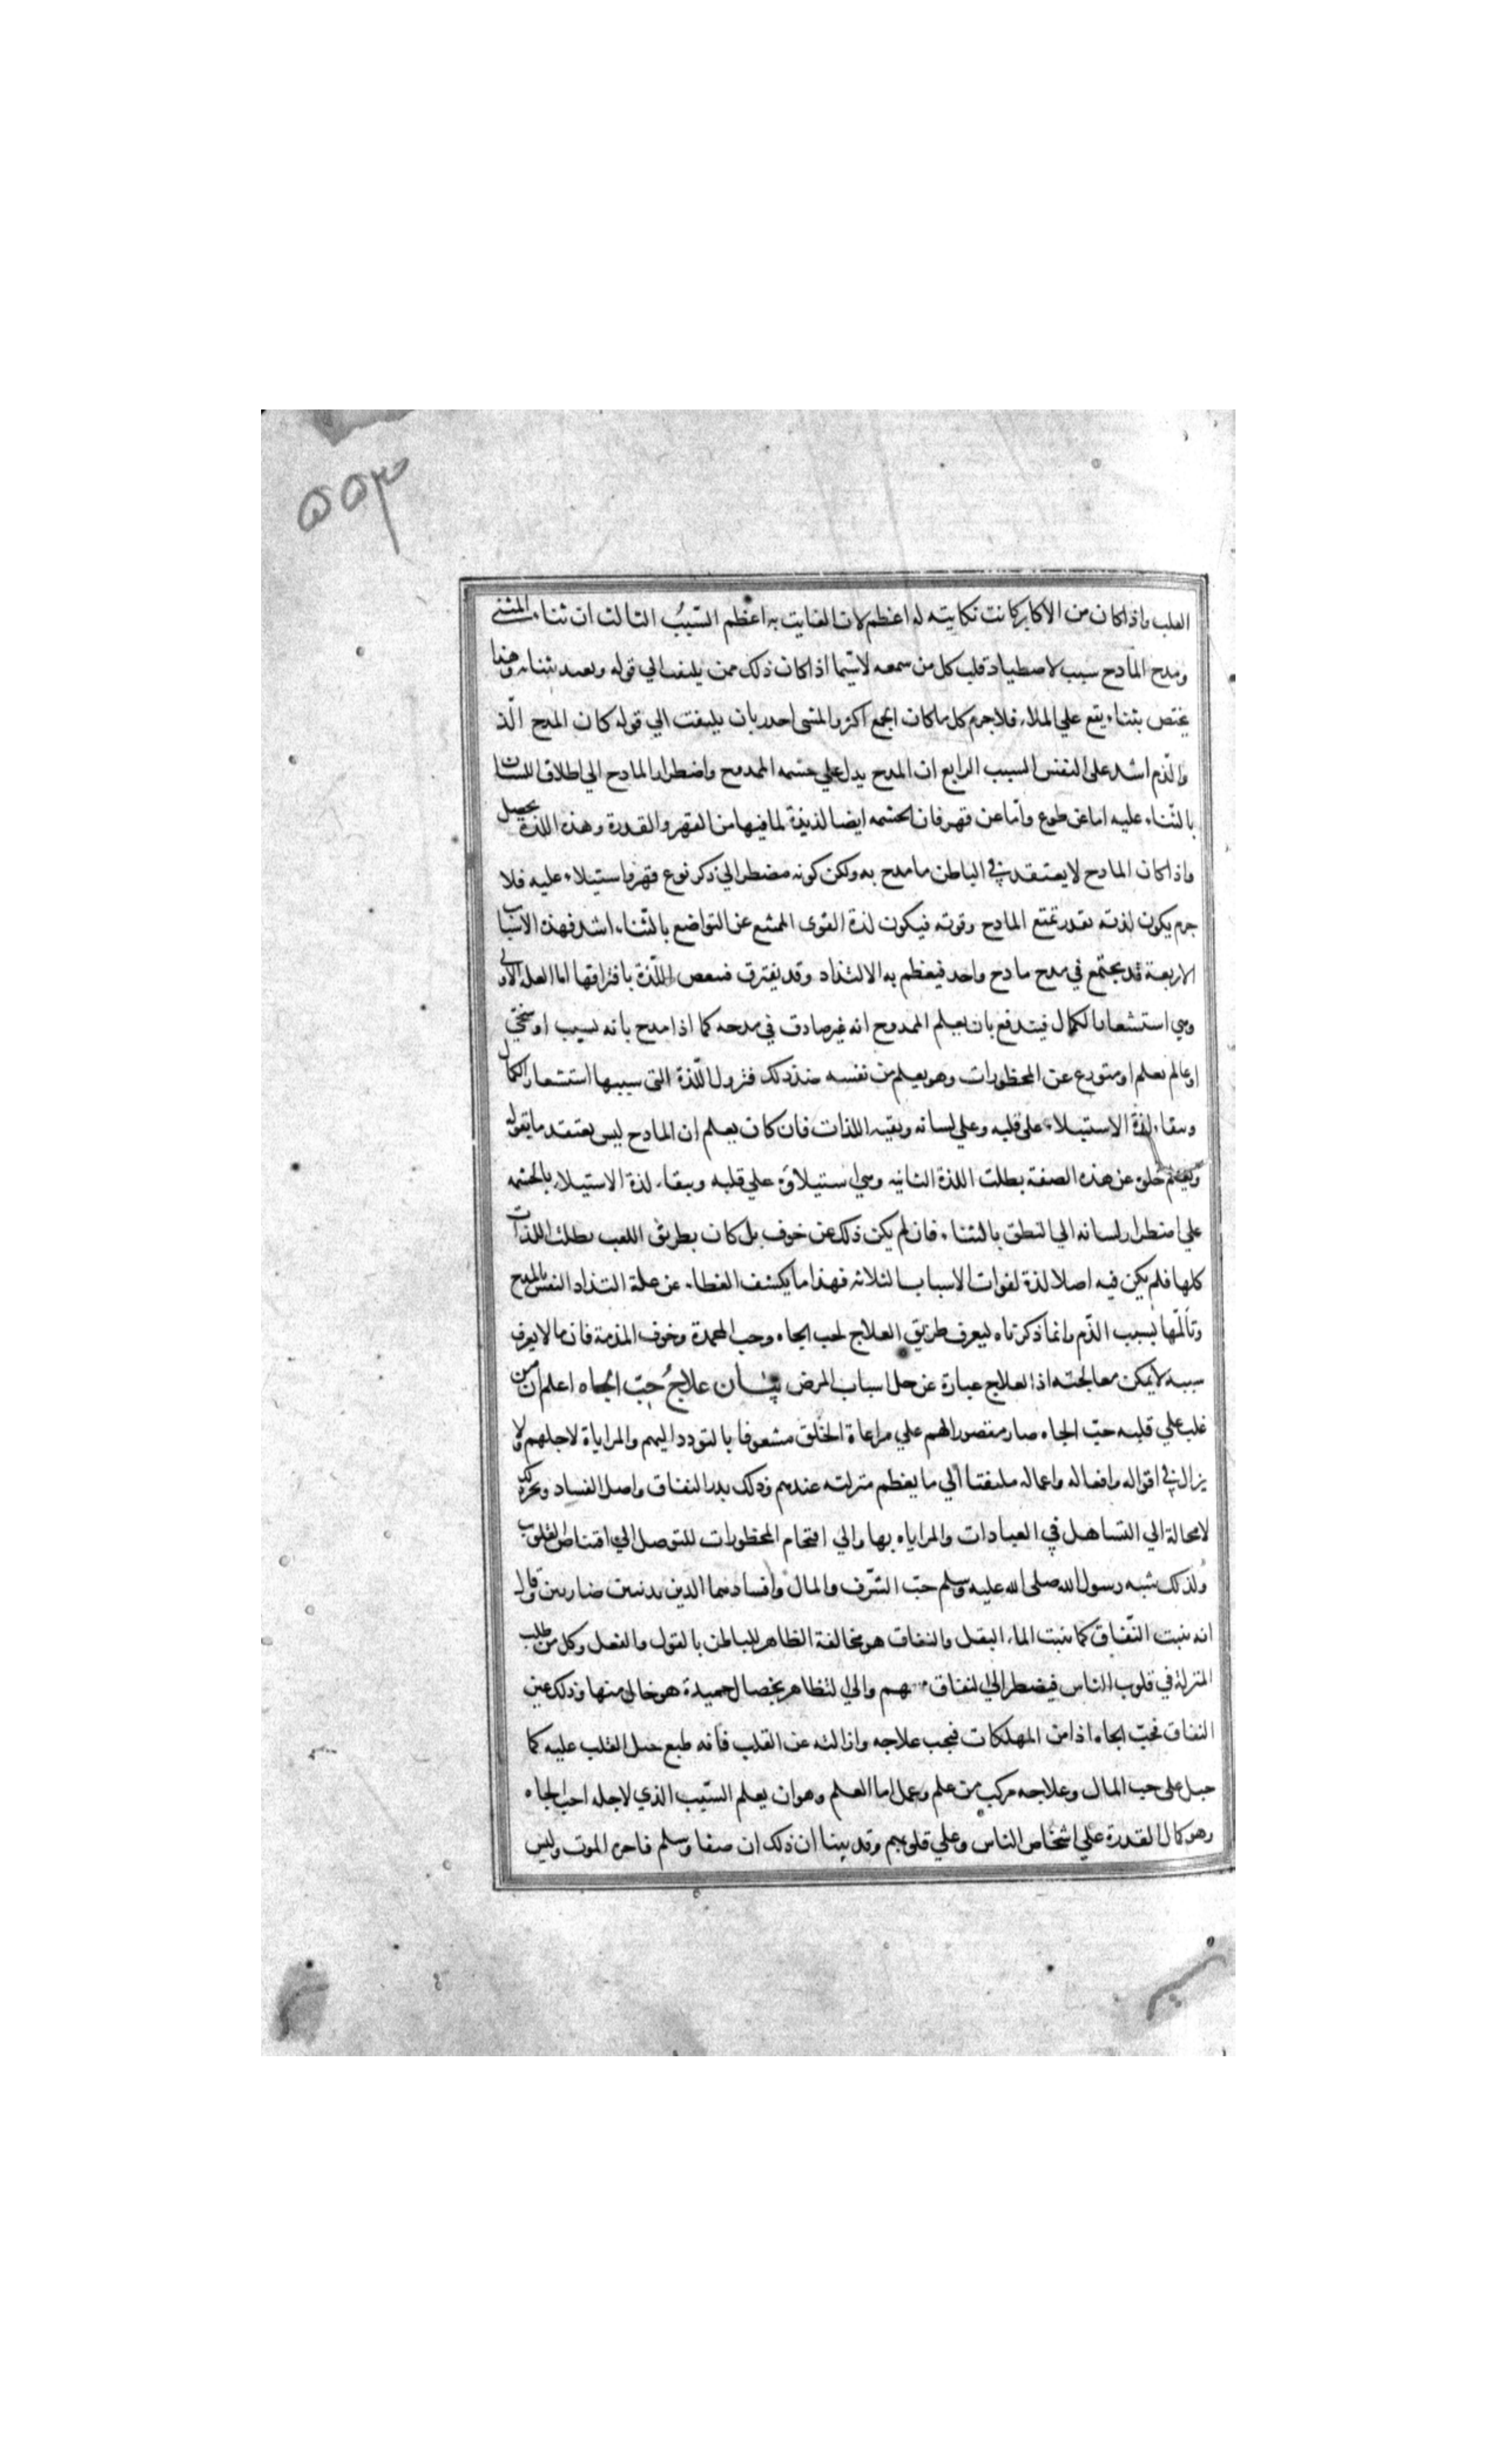 ٥٥٣
القلب واذا كان من الاكابر كانت نكايته له اعظم لان الفايت به اعظم السبب الثالث ان ثناء المثني
ومدح المادح سبب لاصطياد قلب كل من سمعه لاسيما اذا كان ذلك ممن يلتفت الي قوله ويعتد بثنائه وهذا
يختص بثناء يقع علي الملاء فلا جرم كل ما كان الجمع اكثر والمثني اجدر بان يلتفت الي قوله كان المدح الذ
والذم اشد على النفس السبب الرابع ان المدح يدل علي حشمه الممدوح واضطرار المادح الي اطلاق اللسان
بالثناء عليه اما عن طوع واما عن قهر فان الحشمه ايضا لذيذة لما فيها من القهر والقدرة وهذه اللذة تحصل
واذا كان المادح لا يعتقد في الباطن ما مدح به ولكن كونه مضطرا الي ذكر نوع قهر واستيلاء عليه فلا
جرم يكون لذته بقدر تمتع المادح وقوته فيكون لذة القوى الممتنع عن التواضع بالثناء اشد فهذه الاسباب
الاربعة قد يجتمع في مدح مادح واحد فيعظم به الالتذاد وقد يفترق فينقص اللذة بافتراقها اما العله الاولي
وهي استشعار الكمال فيندفع بان يعلم الممدوح انه غير صادق في مدحه كما اذا مدح بانه نسيب او سخي
او عالم بعلم او متورع عن المحظورات وهو يعلم من نفسه ضد ذلك فتزول اللذة التي سببها استشعار الكمال
وببقاء لذة الاستيلاء على قلبه وعلي لسانه وبقيه اللذات فان كان يعلم ان المادح ليس يعتقد ما يقوله
ويعلم خلوه عن هذه الصفة بطلت اللذة الثانيه وهي استيلاؤه علي قلبه ويبقاء لذة الاستيلاء بالحشمه
علي اضطرار لسانه الي النطق بالثناء فان لم يكن ذلك عن خوف بل كان بطريق اللعب بطلت اللذات
كلها فلم يكن فيه اصلا لذة لفوات الاسباب الثلاثه فهذا ما يكشف الغطاء عن علة التذاد النفس بالمدح
وتألمها بسبب الذم وانما ذكرناه ليعرف طريق العلاج لحب الجاه وحب المحمدة وخوف المذمة فان ما لا يعرف
سببه لا يمكن معالجته اذ العلاج عبارة عن حل اسباب المرض بيان علاج حب الجاه اعلم ان من
غلب علي قلبه حب الجاه صار مقصور الهم علي مراعاة الخلق مشعوفا بالتودد اليهم والمراياة لاجلهم ولا
يزال في اقواله وافعاله واعماله ملتفتا الي ما يعظم منزلته عندهم وذلك بذر النفاق واصل الفساد ويجر ذلك
لا محالة الي التساهل في العبادات والمراياه بها والي اقتحام المحظورات للتوصل الي اقتناص القلوب
ولذلك شبه رسول الله صلى الله عليه وسلم حب الشرف والمال وافسادهما الدين بذئبين ضاريين وقال
انه ينبت النفاق كما ينبت الماء البقل والنفاق هو مخالفة الظاهر للباطن بالقول والفعل وكل من طلب
المنزلة في قلوب الناس فيضطر الي النفاق معهم والي التظاهر بخصال حميدة هو خالي منها وذلك عين
النفاق فحب الجاه اذا من المهلكات فيجب علاجه وازالته عن القلب فانه طبع جبل القلب عليه كما
جبل على حب المال وعلاجه مركب من علم وعمل اما العلم وهو ان يعلم السبب الذي لاجله احب الجاه
وهو كمال القدرة علي اشخاص الناس وعلي قلوبهم وقد بينا ان ذلك ان صفا وسلم فاخره الموت وليس